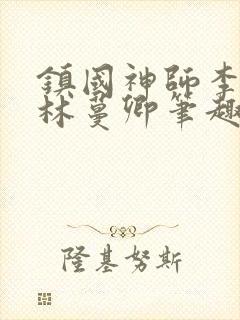 鎮國神師李
林蔓卿筆趣
隆基努斯